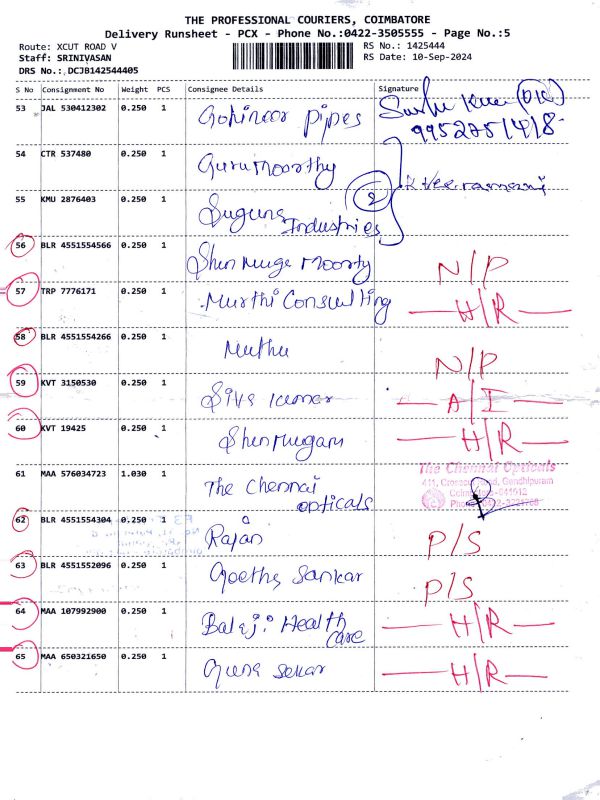 THE PROFESSIONAL COURIERS, COIMBATORE
Delivery Runsheet - PCX - Phone No.:0422-3505555 - Page No.:5
Route: XCUT ROAD V RS No.: 1425444
Staff: SRINIVASAN RS Date: 10-Sep-2024
DRS No.:.DCJB142544405
S No Consignment No Weight PCS Consignee Details Signature
53 JAL 530412302 0.250 1 Gohinoor Pipes
54 CTR 537480 0.250 1 Gurumoorthy
2
55 KMU 2876403 0.250 1 Suguna Industries
56 BLR 4551554566 0.250 1 Shunmuga Moorty N/P
57 TRP 7776171 0.250 1 Murthi Consulting H/R
58 BLR 4551554266 0.250 1 Muthu N/P
59 KVT 3150530 0.250 1 Siva kumar A/I
60 KVT 19425 0.250 1 Shunmugam H/R
61 MAA 576034723 1.030 1 The Chennai opticals The Chennai Opticals
62 BLR 4551554304 0.250 1 Rajan P/S
63 BLR 4551552096 0.250 1 Geetha Sankar P/S
64 MAA 107992900 0.250 1 Balaji Health Care H/R
65 MAA 650321650 0.250 1 Guna sekar H/R